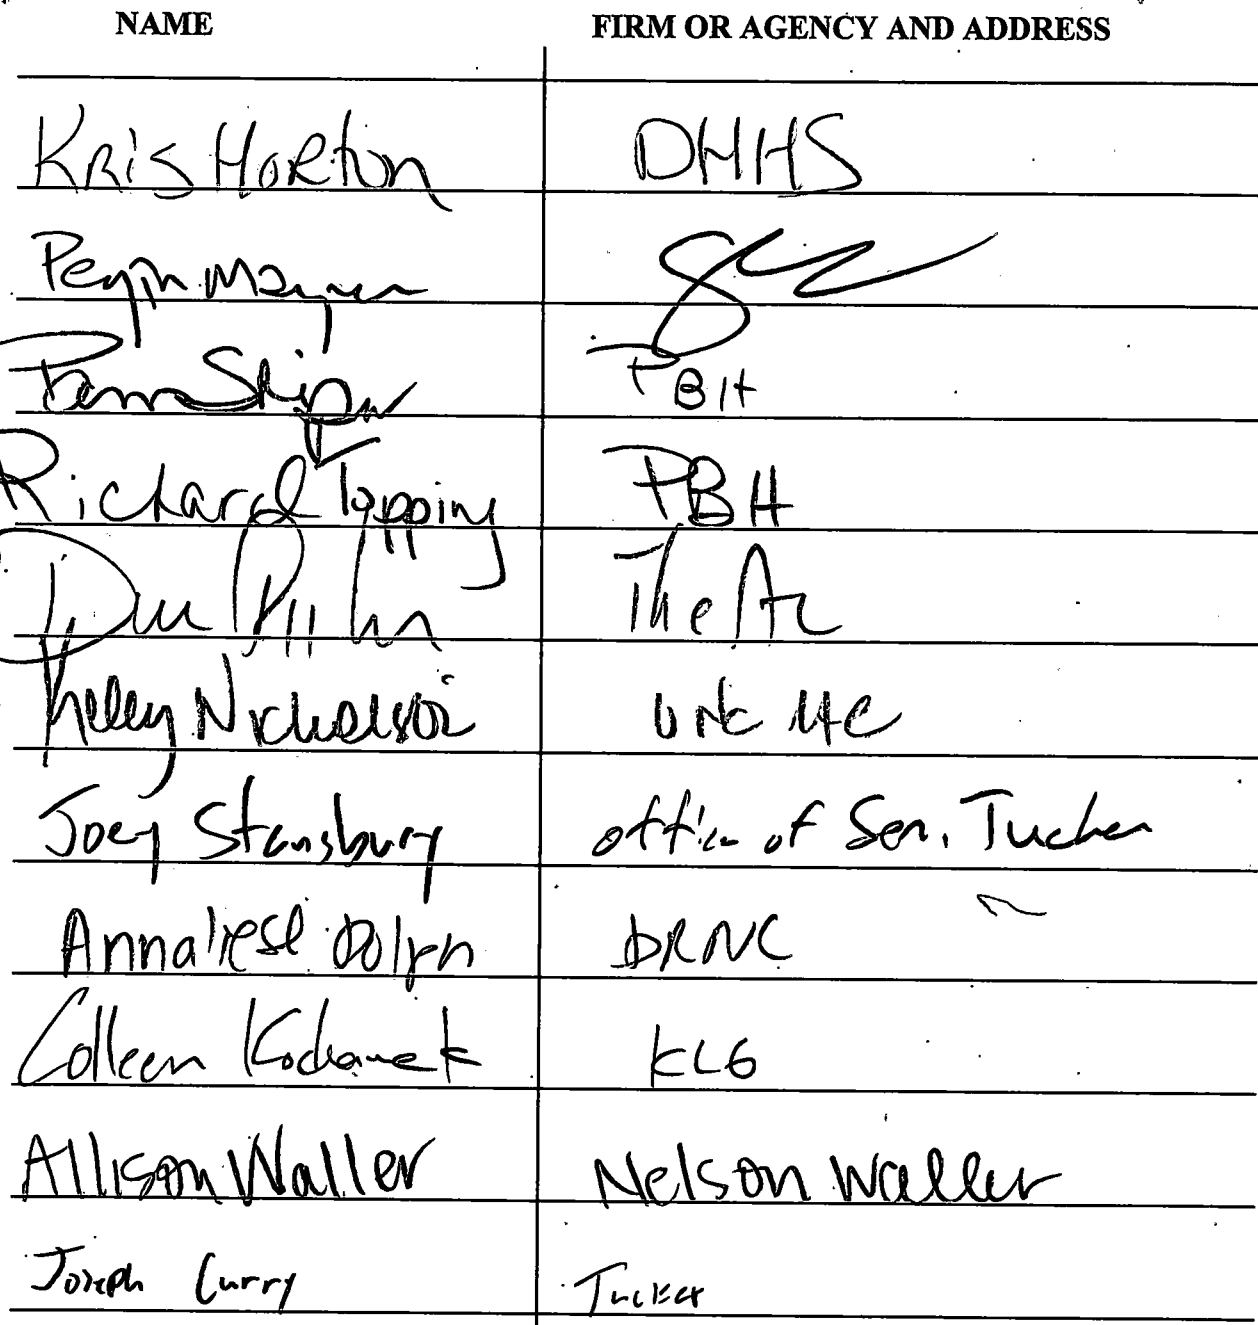 NAME FIRM OR AGENCY AND ADDRESS
Kris Horton DHHS
Pam PBH
Richard Topping PBH
The Arc
Kelly Nicholson UNC HC
Joey Stansbury office of Sen. Tucker
Annaliese Dolph DRNC
Colleen Kochanek KLG
Allison Waller Nelson Waller
Joseph Curry Tucker